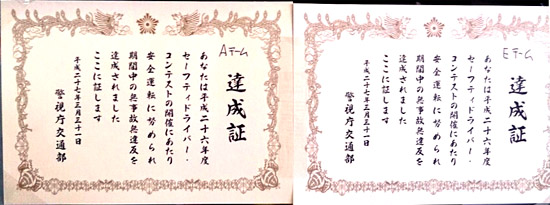 Aチーム
達成証
あなたは平成二十六年度
セーフティドライバー・
コンテストの開催にあたり
安全運転に努められ
期間中の無事故無違反を
達成されました
ここに証します
平成二十七年三月三十一日
警視庁交通部
Eチーム
達成証
あなたは平成二十六年度
セーフティドライバー・
コンテストの開催にあたり
安全運転に努められ
期間中の無事故無違反を
達成されました
ここに証します
平成二十七年三月三十一日
警視庁交通部